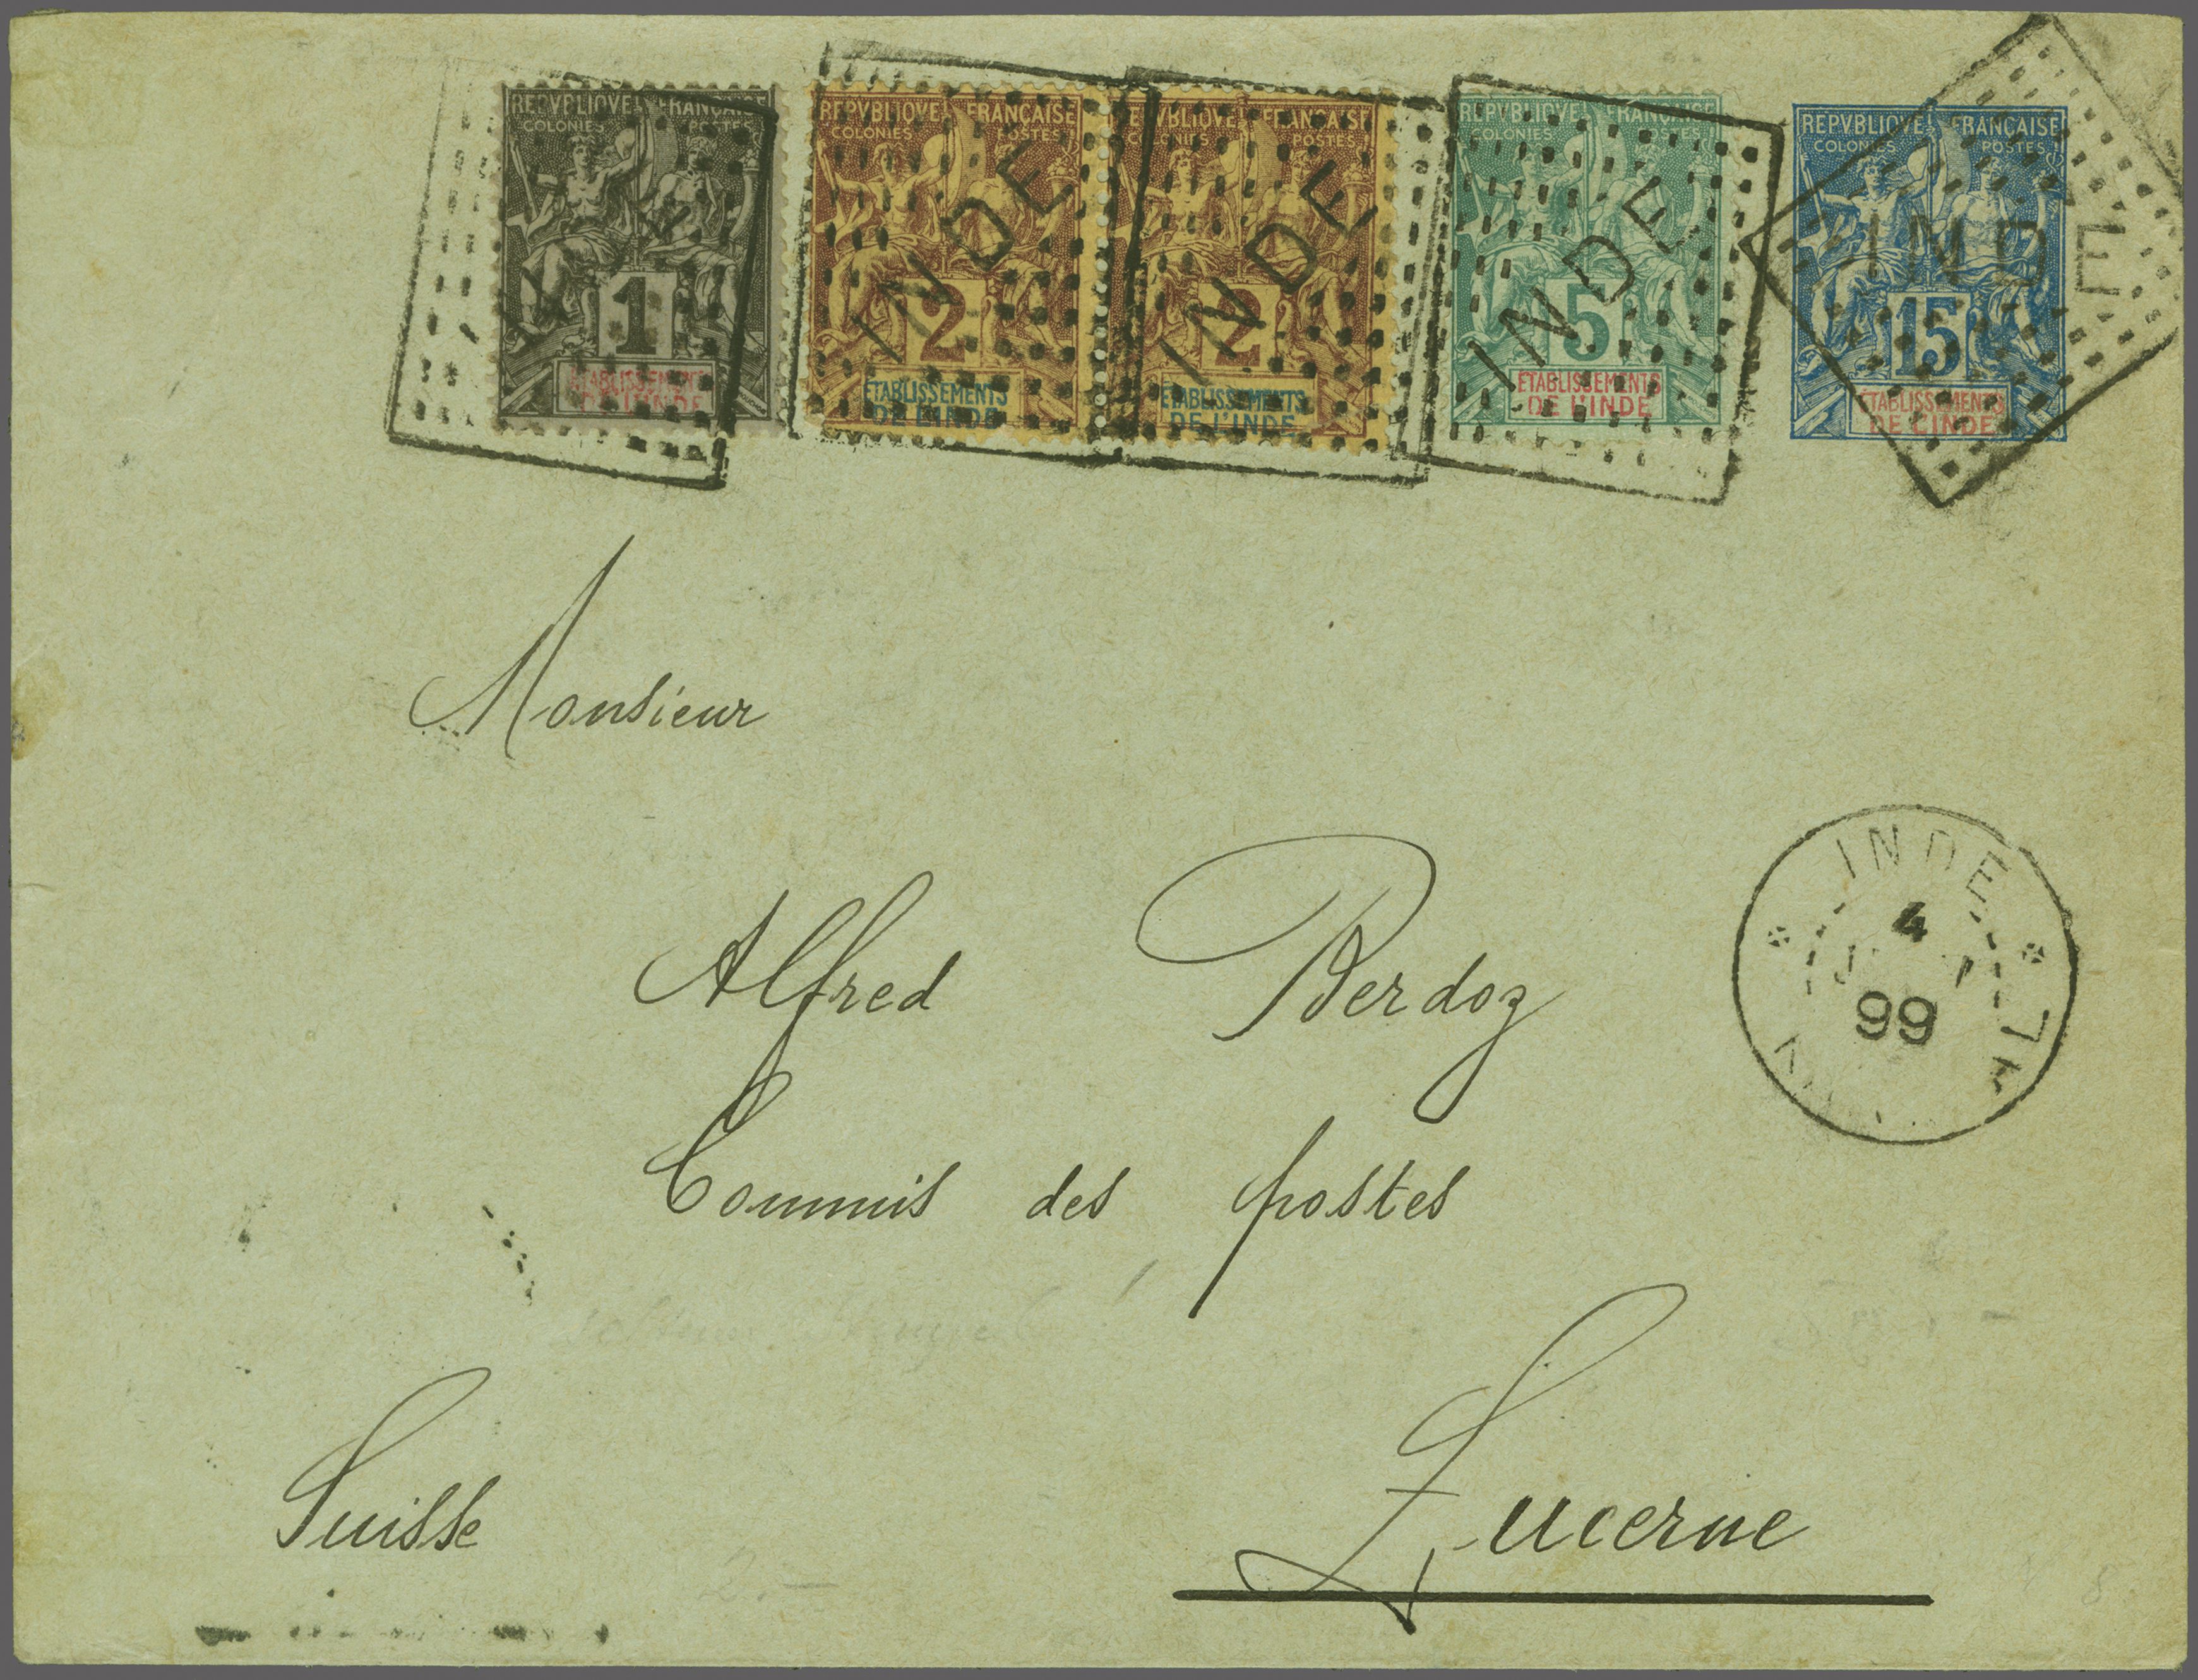 REPVBLIQVE FRANÇAISE
COLONIES POSTES
1
ETABLISSEMENTS
DE L'INDE
REPVBLIQVE FRANÇAISE
COLONIES POSTES
2
ETABLISSEMENTS
DE L'INDE
INDE
REPVBLIQVE FRANÇAISE
COLONIES POSTES
2
ETABLISSEMENTS
DE L'INDE
INDE
REPVBLIQVE FRANÇAISE
COLONIES POSTES
5
ETABLISSEMENTS
DE L'INDE
INDE
REPVBLIQVE FRANÇAISE
COLONIES POSTES
15
ETABLISSEMENTS
DE L'INDE
INDE
Monsieur
INDE
4
99
Alfred Berdoz
Commis des postes
Suisse
Lucerne